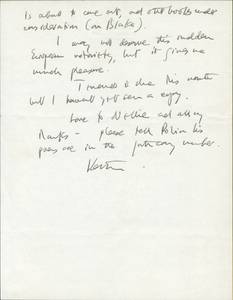 is about to come out, and old books under
consideration (on Blake).
I may not deserve this sudden
European notoriety, but it gives me
much pleasure.
I to this
but I haven't yet seen a copy.
Love to and all
Thanks – please tell his
poems are in the number.